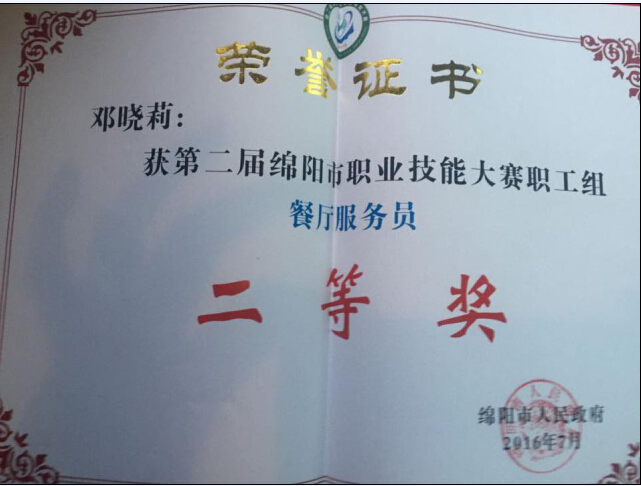 荣誉证书
邓晓莉：
获第二届绵阳市职业技能大赛职工组
餐厅服务员
二等奖
绵阳市人民政府
2016年7月